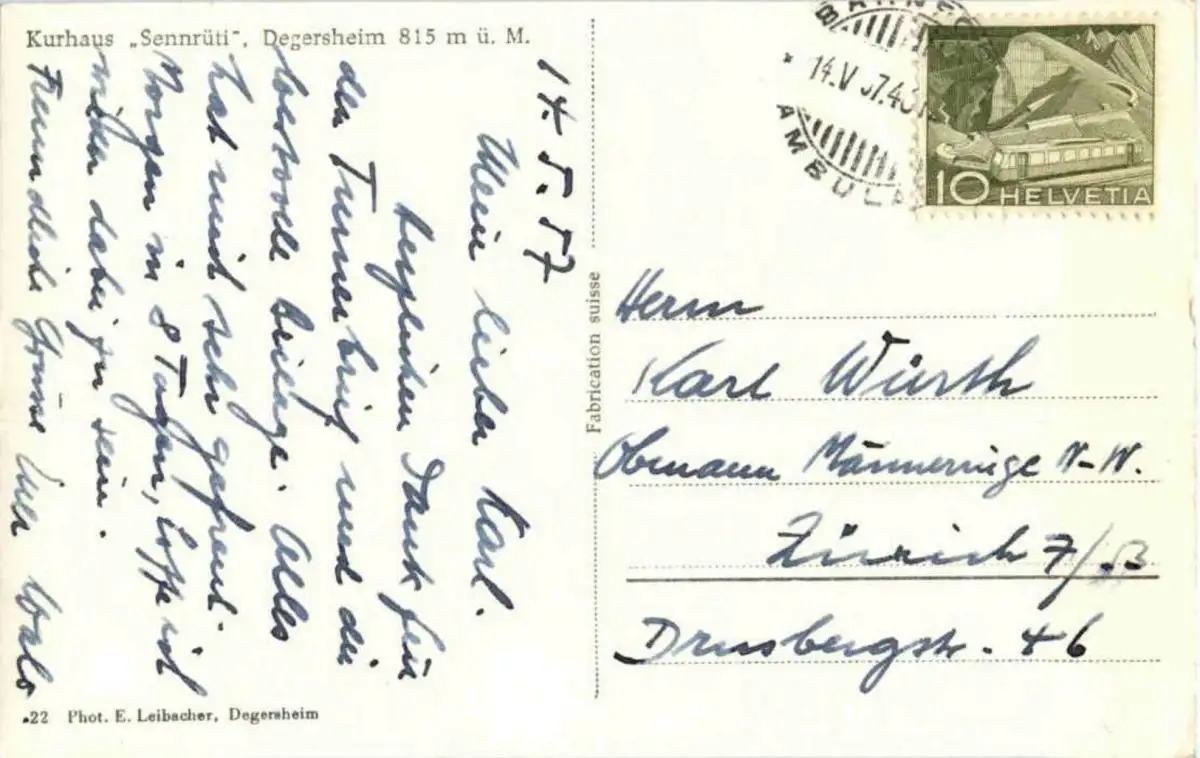 Kurhaus „Sennrüti", Degersheim 815 m ü. M.
14. 5. 57
Mein lieber Karl.
herzlichen Dank für
den Turnerbrief und die
wertvolle Beilage. Alles
hat mich sehr gefreut.
Morgen in 8 Tagen, hoffe ich
wieder dabei zu sein.
Freundliche Grüsse Euer
22 Phot. E. Leibacher, Degersheim
Fabrication suisse
14.V.57.
AMBUL
10 HELVETIA
Herrn
Karl Würth
Obmann Männerriege N-W.
Zürich 7/
Drusbergstr. 46